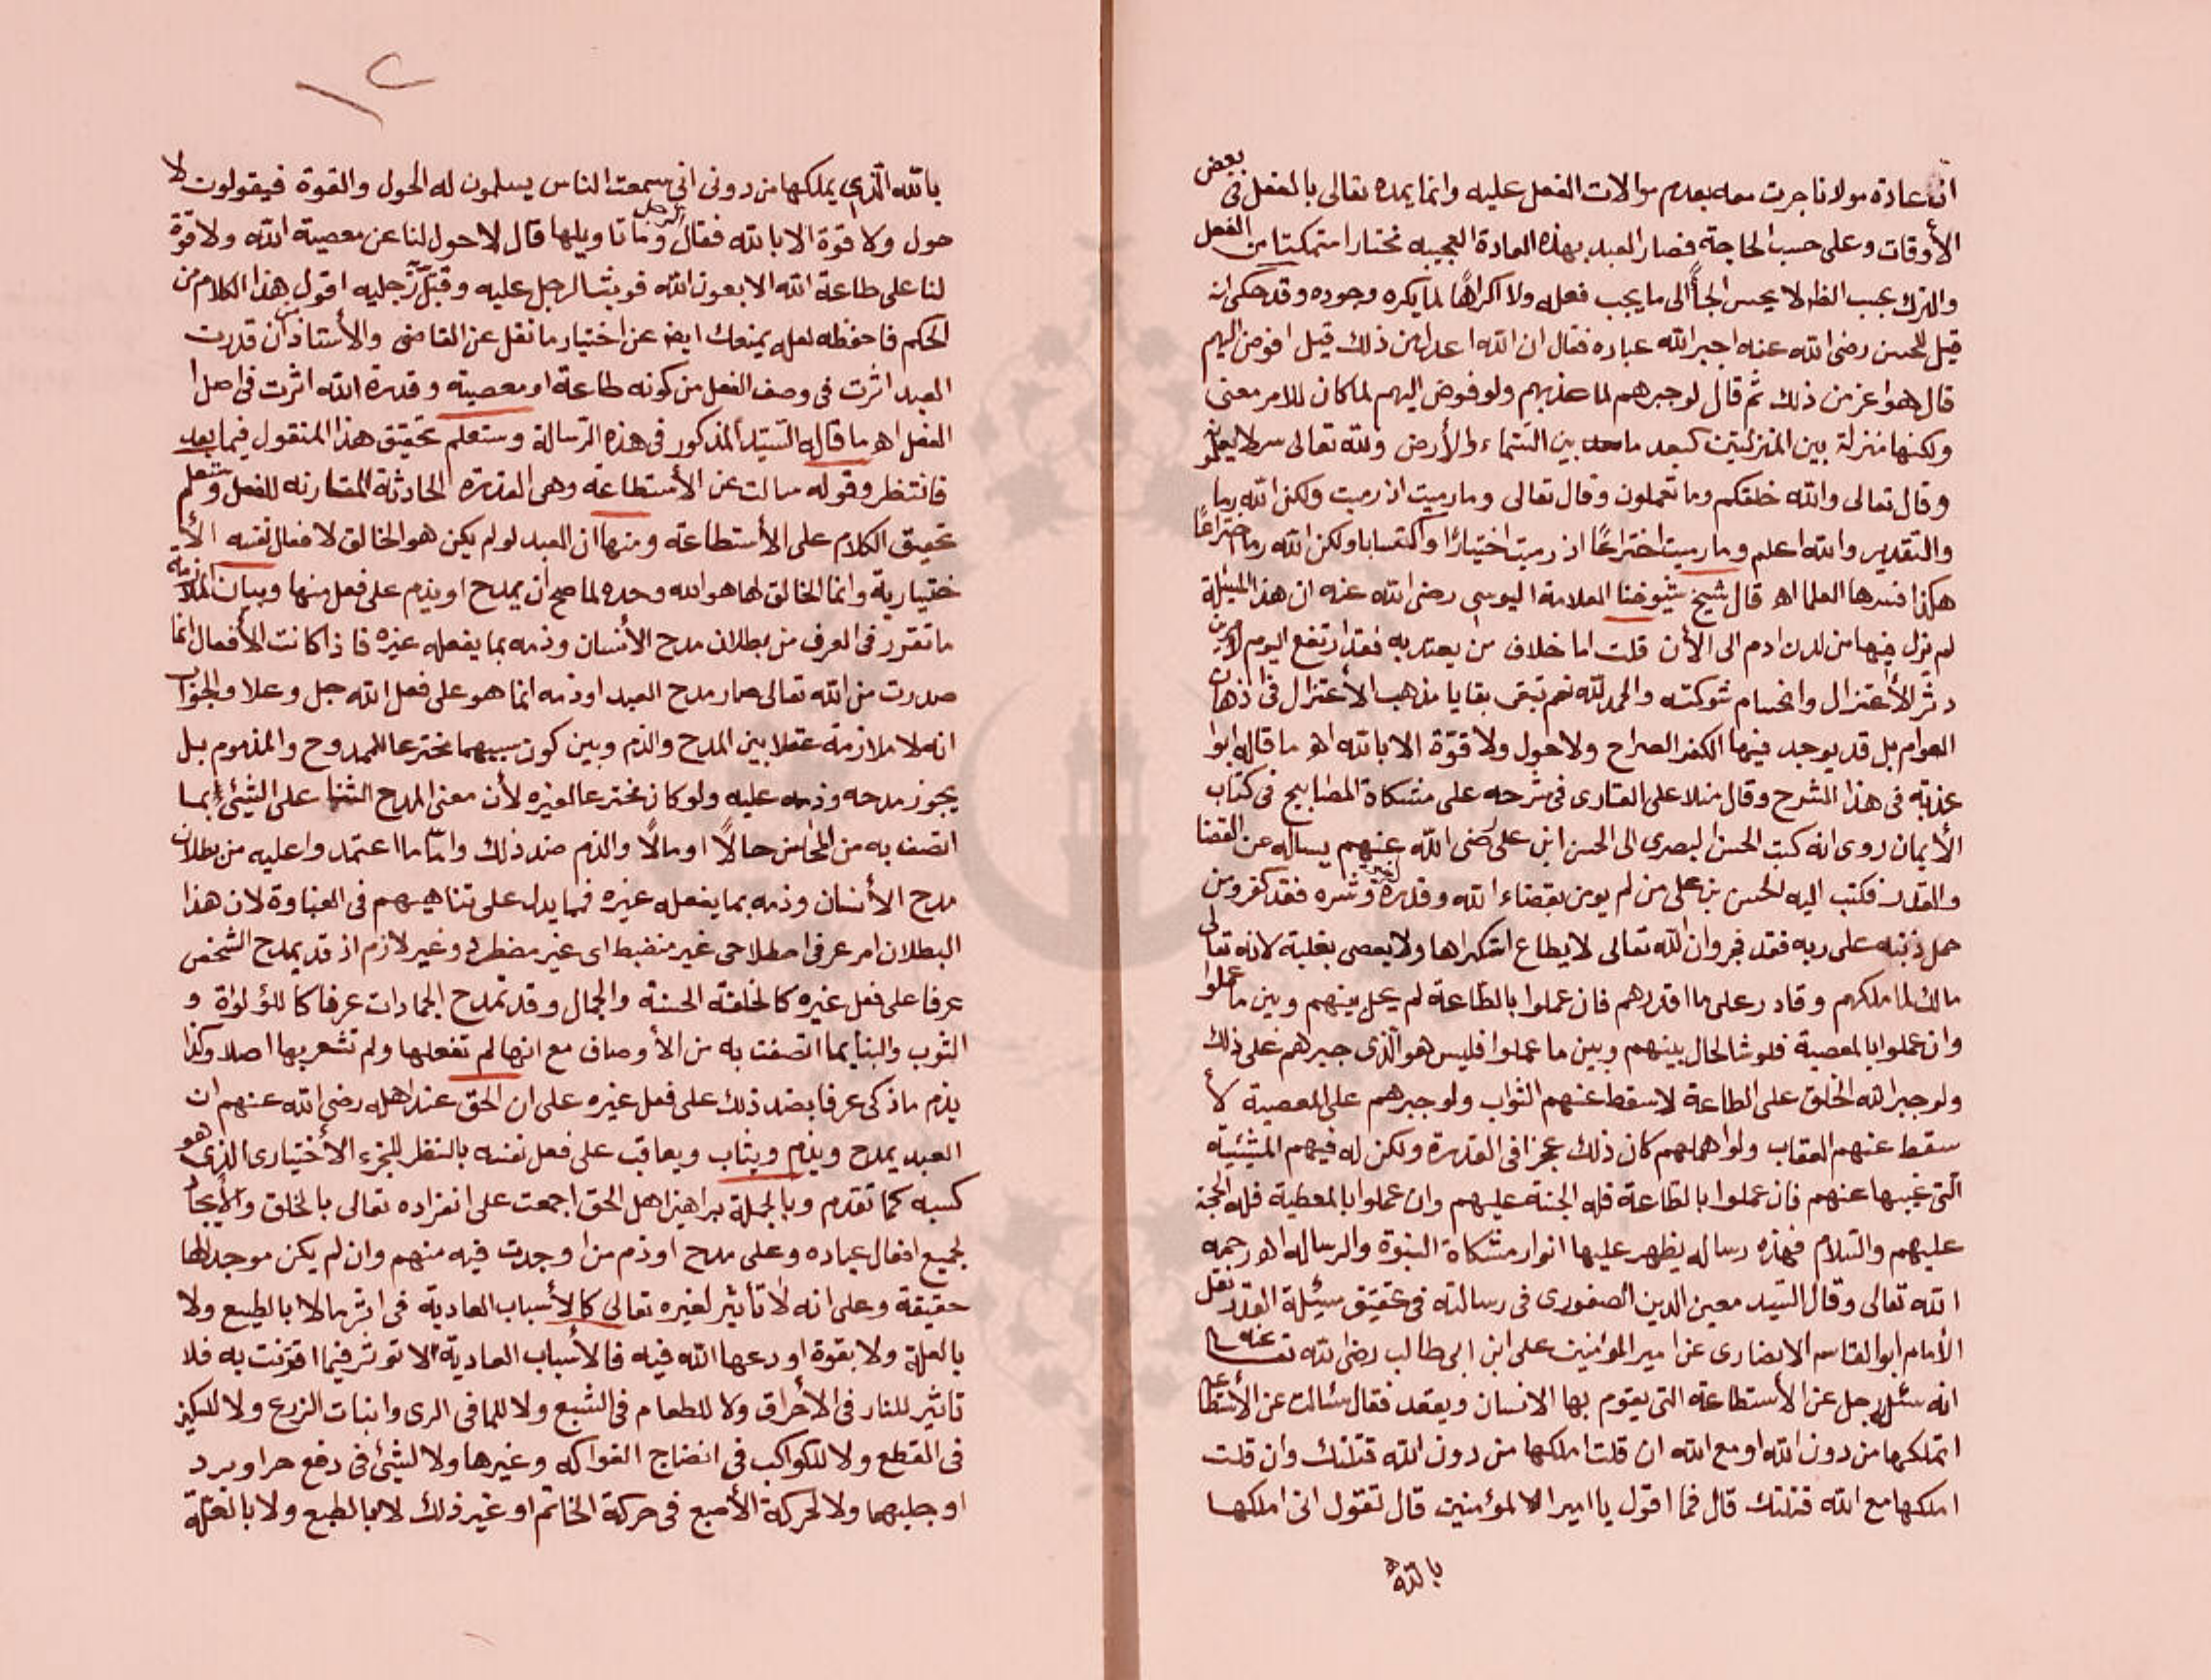 ان عادة مولانا جرت معه بعدم موالات الفعل عليه وانما يمده تعالى بالفعل فى بعض
الأوقات وعلى حسب الحاجة فصار العبد بهذه العادة العجيبه مختارا متمكنا من الفعل
والترك بحسب الظاهر لا يحس الجأً الى ما يجب فعله ولا اكراهًا لما يكره وجوده وقد حكى انه
قيل للحسن رضى الله عنه اجبر الله عباده فقال ان الله اعدل من ذلك قيل افوض اليهم
قال هو اعز من ذلك ثم قال لو جبرهم لما عذبهم ولو فوض اليهم لما كان للامر معنى
ولكنها منزلة بين المنزلتين كبعد ما بين السماء والأرض ولله تعالى سر لا يعلمونه
وقال تعالى والله خلقكم وما تعملون وقال تعالى وما رميت اذ رميت ولكن الله رما
والتقدير والله اعلم وما رميت اختراعًا اذ رميت اختيارًا واكتسابا ولكن الله رما اختراعًا
هكذا فسرها العلما اه قال شيخ شيوخنا العلامة اليوسى رضى الله عنه ان هذا المسئلة
لم يزل فيها من لدن ادم الى الأن قلت اما خلاف من يعتد به فقد ارتفع اليوم
دثر الأعتزال وانحسام شوكته والحمد لله نعم تبقى بقايا مذهب الأعتزال فى اذهان
العوام بل قد يوجد فيها الكفر الصراح ولا حول ولا قوّة الا بالله اه ما قاله ابوا
عذبه فى هذا الشرح وقال منلا على القارى فى شرحه على مشكاة المصابيح فى كتاب
الأيمان روى انه كتب الحسن البصرى الى الحسن ابن على رضى الله عنهم يساله عن القضا
والقدر فكتب اليه الحسن بن على من لم يومن بقضاء الله وقدره خيره وشره فقد كفر ومن
حمل ذنبه على ربه فقد فجر وان الله تعالى لا يطاع استكراها ولا يعصى بغلبة لانه تعالى
مالك لما ملكهم وقادر على ما اقدرهم فان عملوا بالطّاعة لم يحل بينهم وبين ما عملوا
وان عملوا بالمعصية فلو شا لحال بينهم وبين ما عملوا فليس هو الّذى جبرهم على ذلك
ولو جبر الله الخلق على الطاعة لاسقط عنهم الثواب ولو جبرهم على المعصية لأ
سقط عنهم العقاب ولو اهملهم كان ذلك عجزا فى القدرة ولكن له فيهم المشيئيّة
الّتى غيبها عنهم فان عملوا بالطّاعة فله الجنة عليهم وان عملوا بالمعطية فله الحجة
عليهم والسّلام فهذه رساله يظهر عليها انوار مشكاة النبوة والرساله اه ورحمه
الله تعالى وقال السّيد معين الدين الصفورى فى رسالته فى تحقيق مسئلة القدر نقل
الأمام ابو القاسم الانصارى عن امير المؤمنين على ابن ابى طالب رضى لله تعالى عنه
انه سئل رجل عن الأستطاعة التى يقوم بها الانسان ويقعد فقال سئالت عن الأستطاعه
اتملكها من دون الله او مع الله ان قلت املكها من دون الله قتلتك وان قلت
املكها مع الله قتلتك قال فما اقول يا امير الا لمؤمنين قال تقول انى املكها
بالله
١٢
بالله الّذى يملكها من دونى انى سمعت الناس يسلمون له الحول والقوة فيقولون لا
حول ولا قوة الا بالله فقال الرجل وما تاويلها قال لا حول لنا عن معصية الله ولا قوّة
لنا على طاعة الله الا بعون الله فوثب الرجل عليه وقبّل رّجليه اقول هذا الكلام من
الحكم فاحفظه لعله يمنعك ايضا عن اختيار ما نقل عن القاضى والأستاذ من ان قدرت
العبد اثرت فى وصف الفعل من كونه طاعة او معصية وقدرة الله اثرت فى اصل ا
لفعل اه ما قاله السّيّد المذكور فى هذه الرّسالة وستعلم تحقيق هذا المنقول فيما بعد
فانتظر وقوله سالت عن الأستطاعة وهى القدرة الحادثة المقارنه للفعل وستعلم
تحقيق الكلام على الأستطاعة ومنها ان العبد لو لم يكن هو الخالق لافعال نفسه الأ
ختيارية وانما الخالق لها هو الله وحده لما صح ان يمدح او يذم على فعل منها وبيان الملازمة
ما تقرر فى العرف من بطلان مدح الأنسان وذمه بما يفعله غيره فاذا كانت الأفعال انما
صدرت من الله تعالى صار مدح العبد او ذمه انما هو على فعل الله جل وعلا والجواب
انه لا ملازمة عقلا بين المدح والذم وبين كون سببهما مخترعا للممدوح والمذموم بل
يجوز مدحه وذمه عليه ولو كان مخترعا لغيره لأن معنى المدح الثنا على الشيئ بما
اتصف به من المحاسن حالًا او مالًا والذم ضد ذلك وامّا ما اعتمدوا عليه من بطلان
مدح الأنسان وذمه بما يفعله غيره فما يدل على تناهيهم فى الغباوة لان هذا
البطلان امر عرفى اصطلاحى غير منضبط اى غير مضطرد وغير لازم اذ قد يمدح الشخص
عرفا على فعل غيره كالخلقة الحسنة والجمال وقد تمدح الجمادات عرفا كاللؤلؤاة و
الثوب والبنا بما اتصفت به من الأوصاف مع انها لم تفعلها ولم تشعر بها اصلا وكذا
يذم ماذكى عرفا بضد ذلك على فعل غيره على ان الحق عند اهله رضى الله عنهم ان
العبد يمدح ويذم ويثاب ويعاقب على فعل نفسه بالنظر للجزء الأختيارى الذى هو
كسبه كما تقدم وبالجملة براهين اهل الحق اجمعت على انفراده تعالى بالخلق والأيجاد
لجميع افعال عباده وعلى مدح او ذم من اوجدت فيه منهم وان لم يكن موجد لها
حقيقة وعلى انه لا تأثير لغيره تعالى كالأسباب العادية فى اثر ما لا بالطبع ولا
بالعلة ولا بقوة اودعها الله فيه فالأسباب العادية لا تؤثر فيما اقترنت به فلا
تاثير للنار فى الأحراق ولا للطعام فى الشبع ولا للما فى الرى وانبات الزرع ولا للسكين
فى القطع ولا للكواكب فى انضاج الفواكه وغيرها ولا لشيئ فى دفع حر او برد
او جلبهما ولا لحركة الأصبع فى حركة الخاتم او غير ذلك لا بالطبع ولا بالعلّة